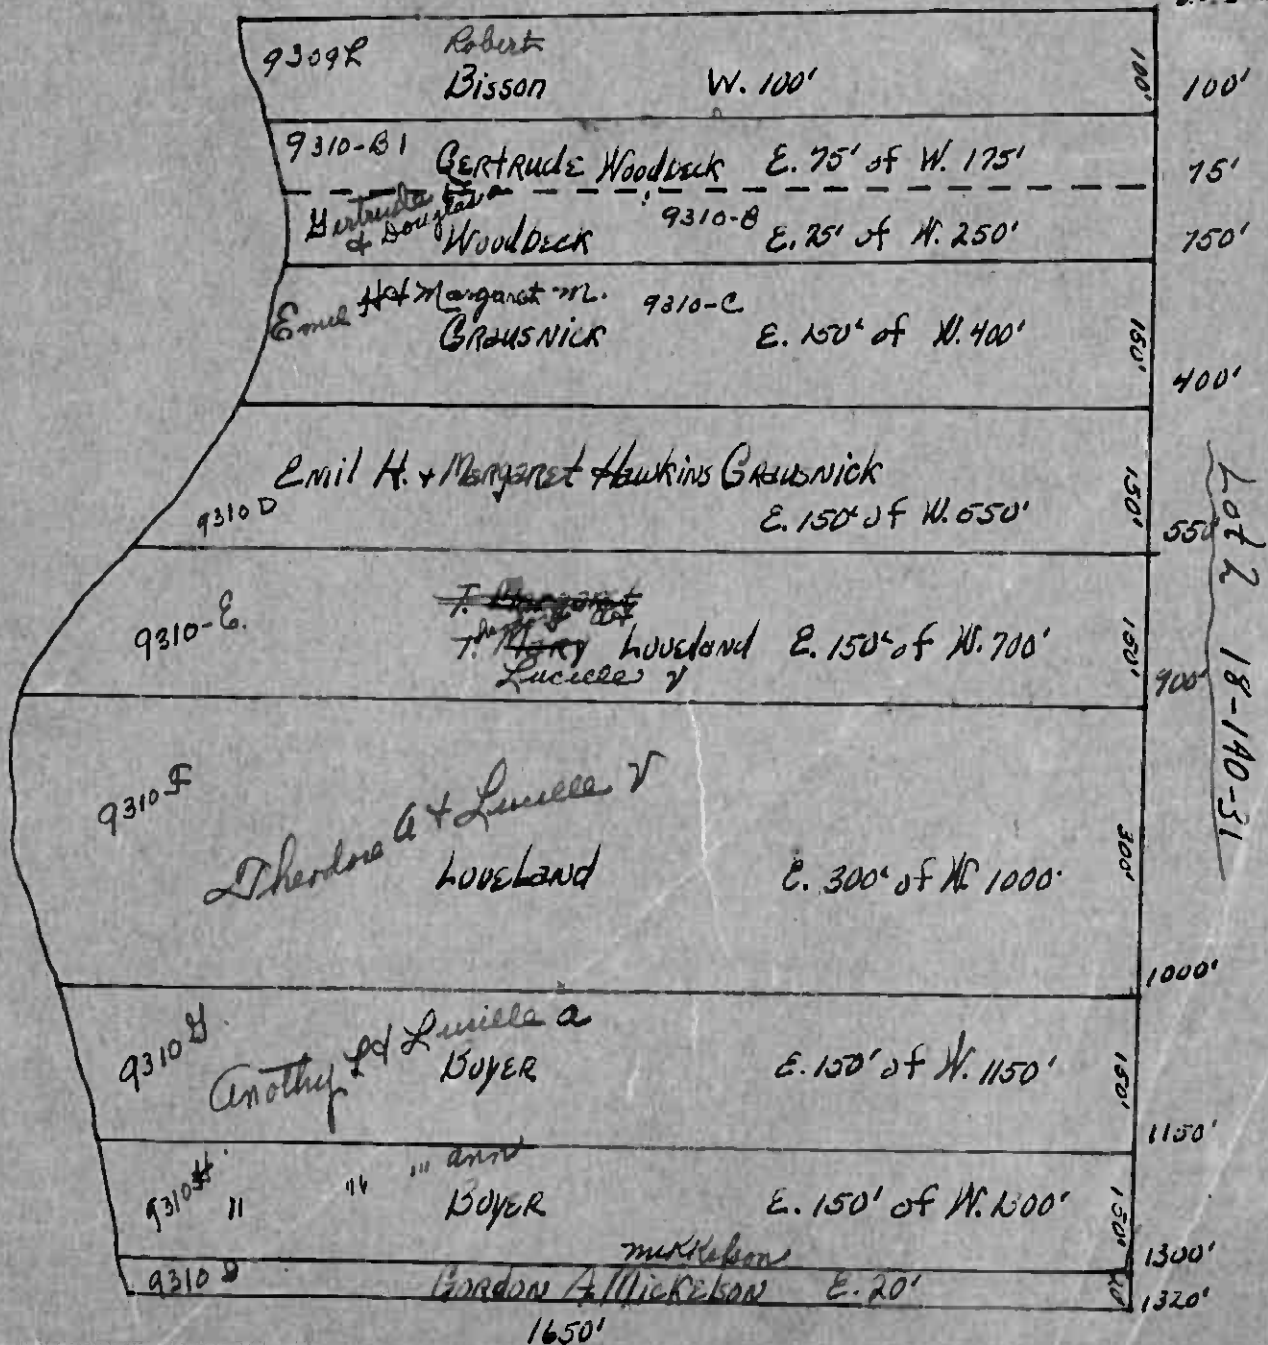 Robert
9309L Bisson W. 100' 100' 100'
9310-B1 Gertrude Woodbeck E. 75' of W. 175' 75'
Gertrude & Douglas
Woodbeck 9310-B E. 75' of W. 250' 750'
Emil H & Margaret M. 9310-C
Grausnick E. 150' of W. 400' 150'
400'
Emil H. & Margaret Hawkins Grausnick
9310 D E. 150' of W. 550' 150' 550'
9310-E.
T. Mary Loveland E. 150' of W. 700' 150'
Lucille V 700'
Lot 2 18-140-31
9310 F
Theodore A & Lucille V
Loveland E. 300' of W. 1000' 300'
1000'
9310 G
Anothy L & Lucille A
Boyer E. 150' of W. 1150' 150'
1150'
9310 H " " " Ann
Boyer E. 150' of W. 1300' 150'
1300'
Mikkelson
9310 Gordon A. Mickelson E. 20' 20' 1320'
1650'